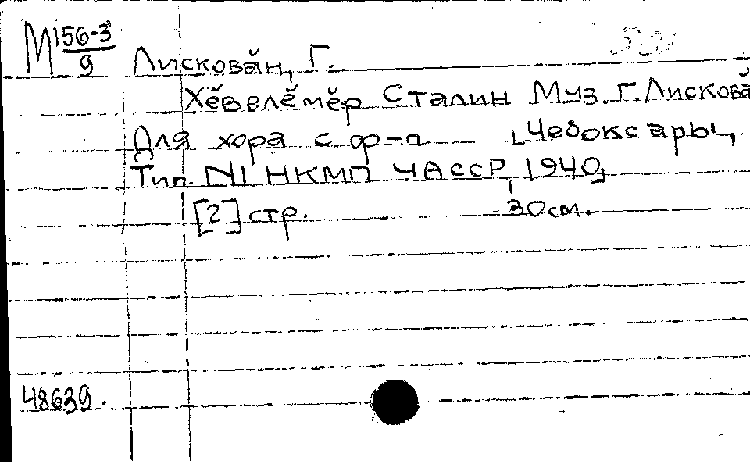 М 156-3
9
Лисковӑн, Г.
Хӗвелӗмӗр Сталин Муз. Г. Лискова
Для хора с ф-п [Чебоксары,
Тип. №1 НКМП ЧАССР, 1940]
[2] стр. 30 см.
48639.